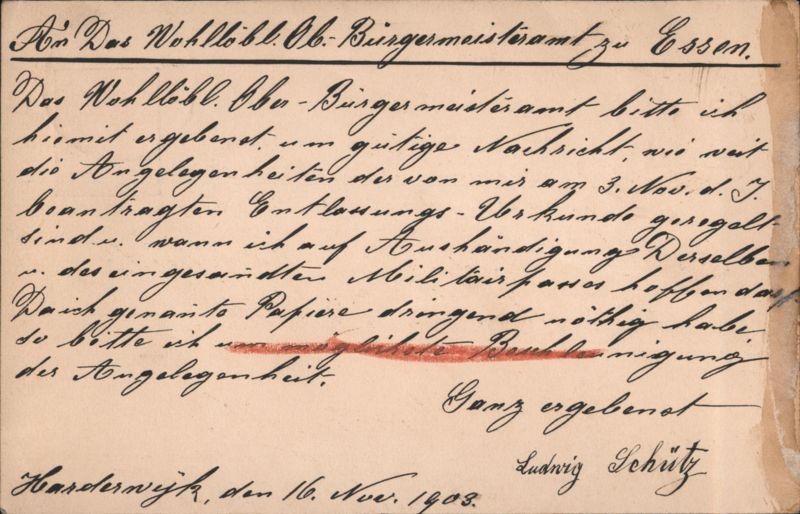 An Das Wohllöbl. Ob.-Bürgermeisteramt zu Essen.
Das Wohllöbl. Ober-Bürgermeisteramt bitte ich
hiemit ergebenst, um gütige Nachricht, wie weit
die Angelegenheiten der von mir am 3. Nov. d. J.
beantragten Entlassungs-Urkunde geregelt
sind u. wann ich auf Aushändigung Derselben
u. des eingesandten Militairpasses hoffen darf
Da ich genannte Papiere dringend nöthig habe,
so bitte ich um möglichste Beschleunigung
der Angelegenheit.
Ganz ergebenst
Ludwig Schütz
Harderwijk, den 16. Nov. 1903.